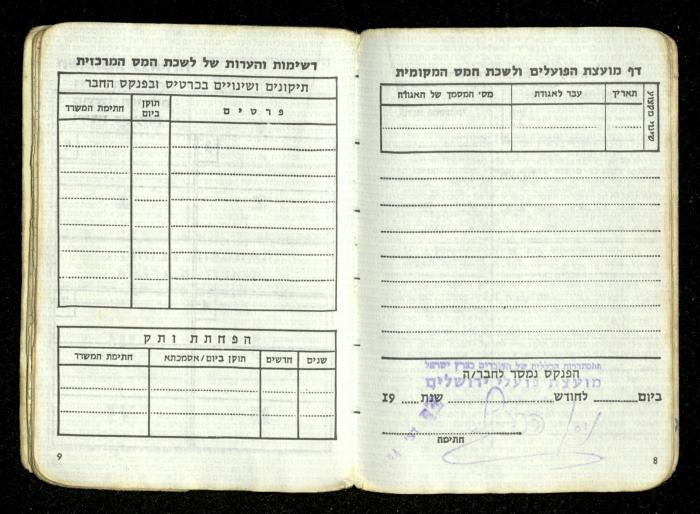 דף מועצת הפועלים ולשכת המס המקומית
שינוי מקצוע
תאריך
עבר לאגודת
מס' המסמך של האגודה
ההסתדרות הכללית של העובדים בארץ ישראל
הפנקס נמסר לחבר/ה
מועצת פועלי ירושלים
ביום ......... לחודש .......... שנת ..... 19
חתימה
8
רשימות והערות של לשכת המס המרכזית
תיקונים ושינויים בכרטיס ובפנקס החבר
פרטים
תוקן ביום
חתימת המשרד
הפחתת ותק
שנים
חדשים
תוקן ביום/אסמכתא
חתימת המשרד
9